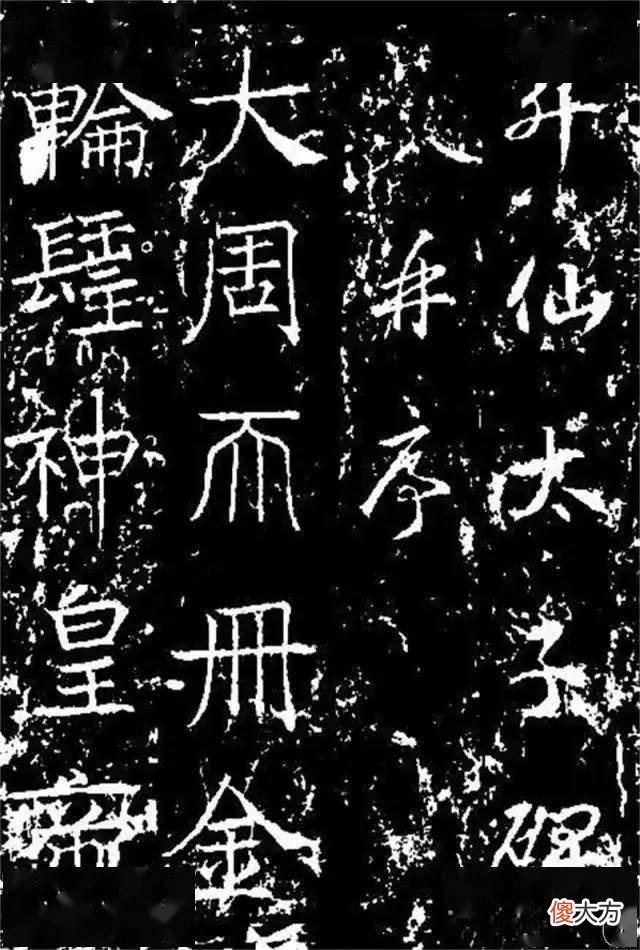 升仙太子碑
并序
大周𠀑冊金
輪𨲢神皇帝
傻大方